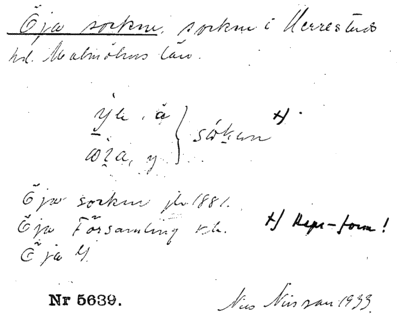 Öja socken. socken i Herrestads
hd. Malmöhus län.
socken x)
Öja socken jb 1881.
Öja Församling kb.
Öja G.
x) Repr-form!
Nr 5639.
Nils Nilsson 1933.